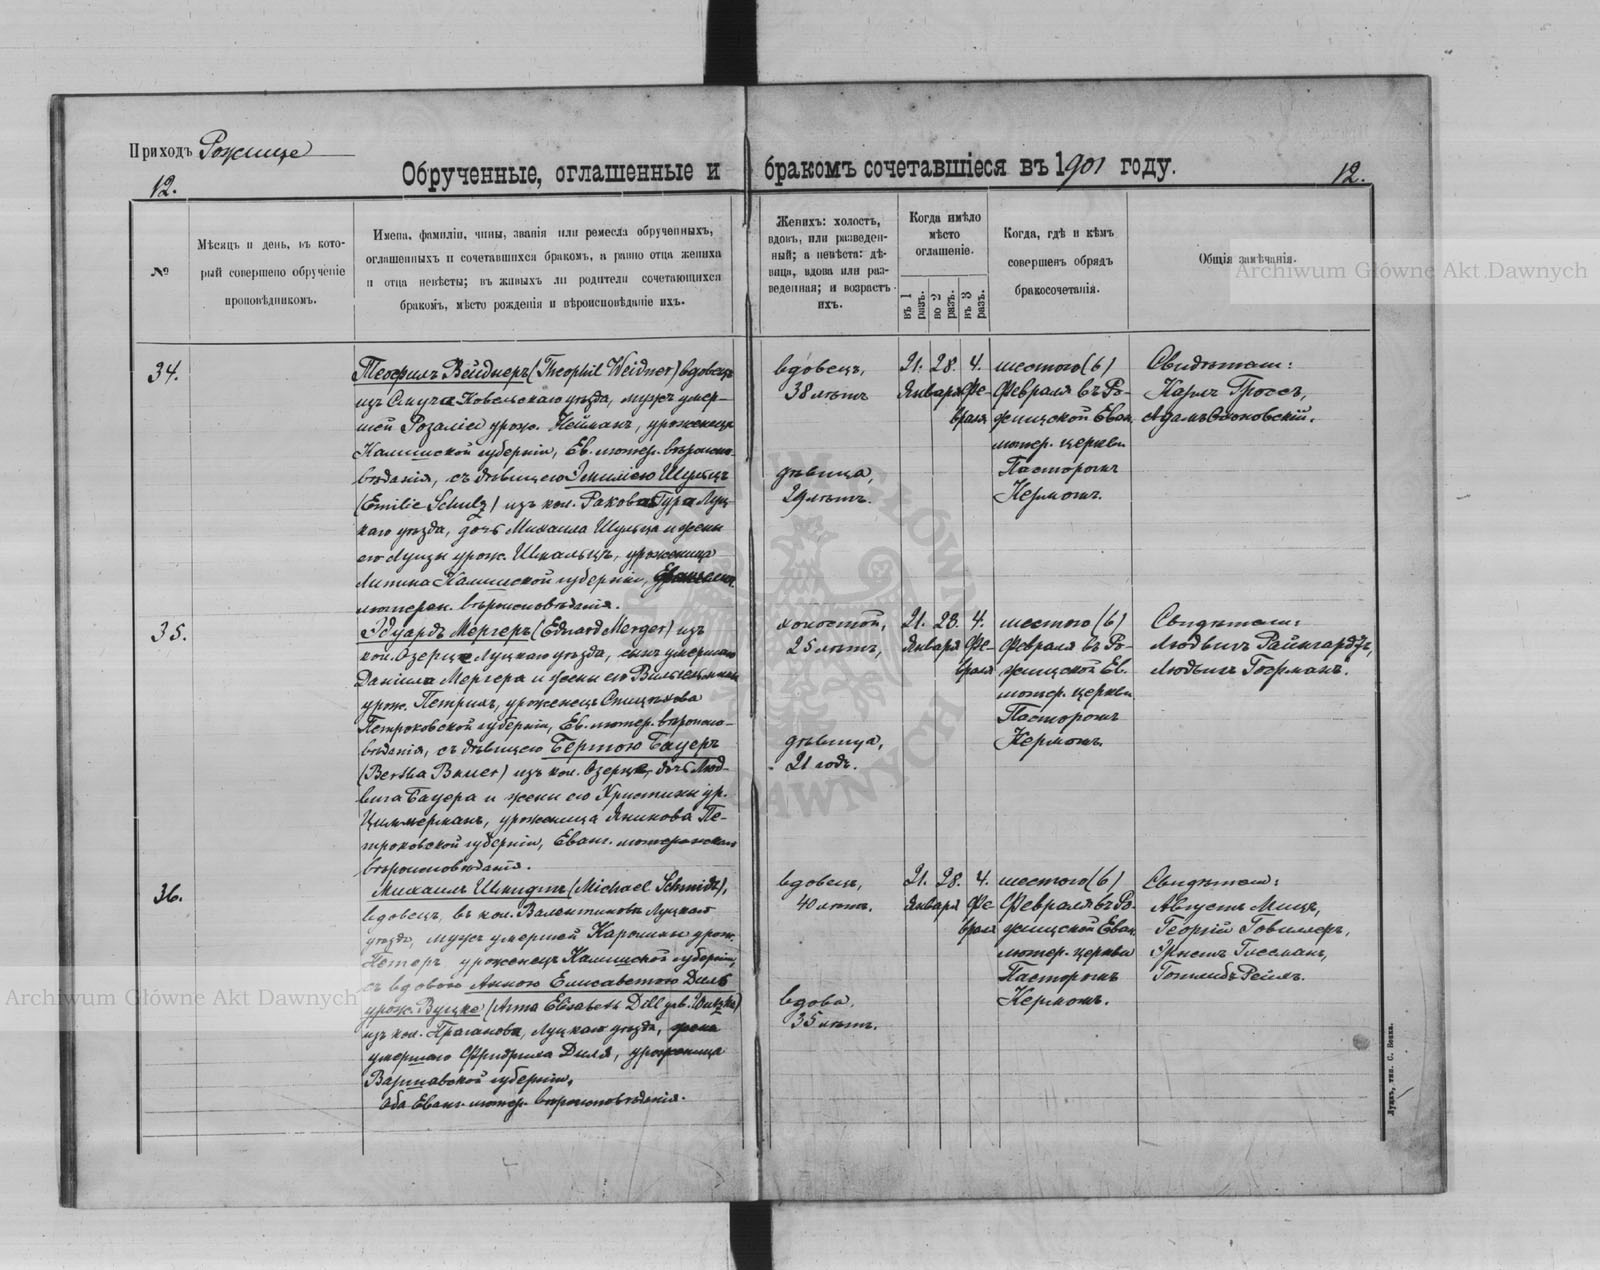 Приходъ Рожище
12.
Обрученные, оглашенные и бракомъ сочетавшіеся въ 1901 году.
12.
№
Мѣсяцъ и день, въ кото-
рый совершено обрученіе
проповѣдникомъ.
Имена, фамиліи, чины, званія или ремесла обрученныхъ,
оглашенныхъ и сочетавшихся бракомъ, а равно отца жениха
и отца невѣсты; въ живыхъ ли родители сочетающихся
бракомъ, мѣсто рожденія и вѣроисповѣданіе ихъ.
Женихъ: холостъ,
вдовъ, или разведен-
ный; а невѣста: дѣ-
вица, вдова или раз-
веденная; и возрастъ
ихъ.
Когда имѣло
мѣсто
оглашеніе.
въ 1 разъ.
во 2 разъ.
въ 3 разъ.
Когда, гдѣ и кѣмъ
совершенъ обрядъ
бракосочетанія.
Общія замѣчанія.
34.
Теофилъ Вейднеръ (Theophil Weidner) вдовецъ
изъ Ковельскаго уѣзда, мужъ умер-
шей Розаліи урож. Нейманъ, уроженецъ
Калишской губерніи, Ев. лютер. вѣроиспо-
вѣданія, съ дѣвицею Эмиліею Шульцъ
(Emilie Schulz) изъ кол. Раковъ Тура Луц-
каго уѣзда, дочь Михаила Шульца и жены
его Луизы урож. Шмальцъ, уроженица
Калишской губерніи, Евангел.
лютеран. вѣроисповѣданія.
вдовецъ,
38 лѣтъ
дѣвица,
29 лѣтъ.
21. 28. 4.
Января Фе-
враля
шестого (6)
Февраля въ Ро-
жищской Еван.
лютер. церкви
Пасторомъ
Кермомъ.
Свидѣтели:
Карлъ Гроссъ,
Адамъ
35.
Эдуардъ Мергеръ (Eduard Merger) изъ
кол. Озерце Луцкаго уѣзда, сынъ умершаго
Даніила Мергера и жены его Вильгельмины
урож. Петрихъ, уроженецъ
Петроковской губерніи, Ев. лютер. вѣроиспо-
вѣданія, съ дѣвицею Бертою Бауеръ
(Bertha Bauer) изъ кол. Озерце, дочь Люд-
вига Бауера и жены его Христины ур.
Циммерманъ, уроженица Яникова Пе-
троковской губерніи, Еванг. лютеранскаго
вѣроисповѣданія.
холостой,
25 лѣтъ,
дѣвица,
21 годъ.
21. 28. 4.
Января Фе-
враля
шестого (6)
Февраля въ Ро-
жищской Ев.
лютер. церкви
Пасторомъ
Кермомъ.
Свидѣтели:
Людвигъ Райнгардтъ,
Людвигъ Гофманъ.
36.
Михаилъ Шмидтъ (Michael Schmidt),
вдовецъ, въ кол. Валентиновъ Луцкаго
уѣзда, мужъ умершей Каролины урож.
Петеръ уроженецъ Калишской губерніи,
съ вдовою Анною Елисаветою Диль
урож. Вуцке (Anna Elisabeth Dill geb. Wutzke)
изъ кол. Луцкаго уѣзда, жена
умершаго Фридриха Диля, уроженица
Варшавской губерніи,
Оба Еванг. лютер. вѣроисповѣданія.
вдовецъ,
40 лѣтъ.
вдова,
35 лѣтъ.
21. 28. 4.
Января Фе-
враля
шестого (6)
Февраля въ Ро-
жищской Еван.
лютер. церкви
Пасторомъ
Кермомъ.
Свидѣтели:
Августъ Мицъ,
Георгій
Эрнстъ Гиссманъ,
Готлибъ Рейлъ.
Луцкъ, тип. С. Бокка.
Archiwum Główne Akt Dawnych
Archiwum Główne Akt Dawnych